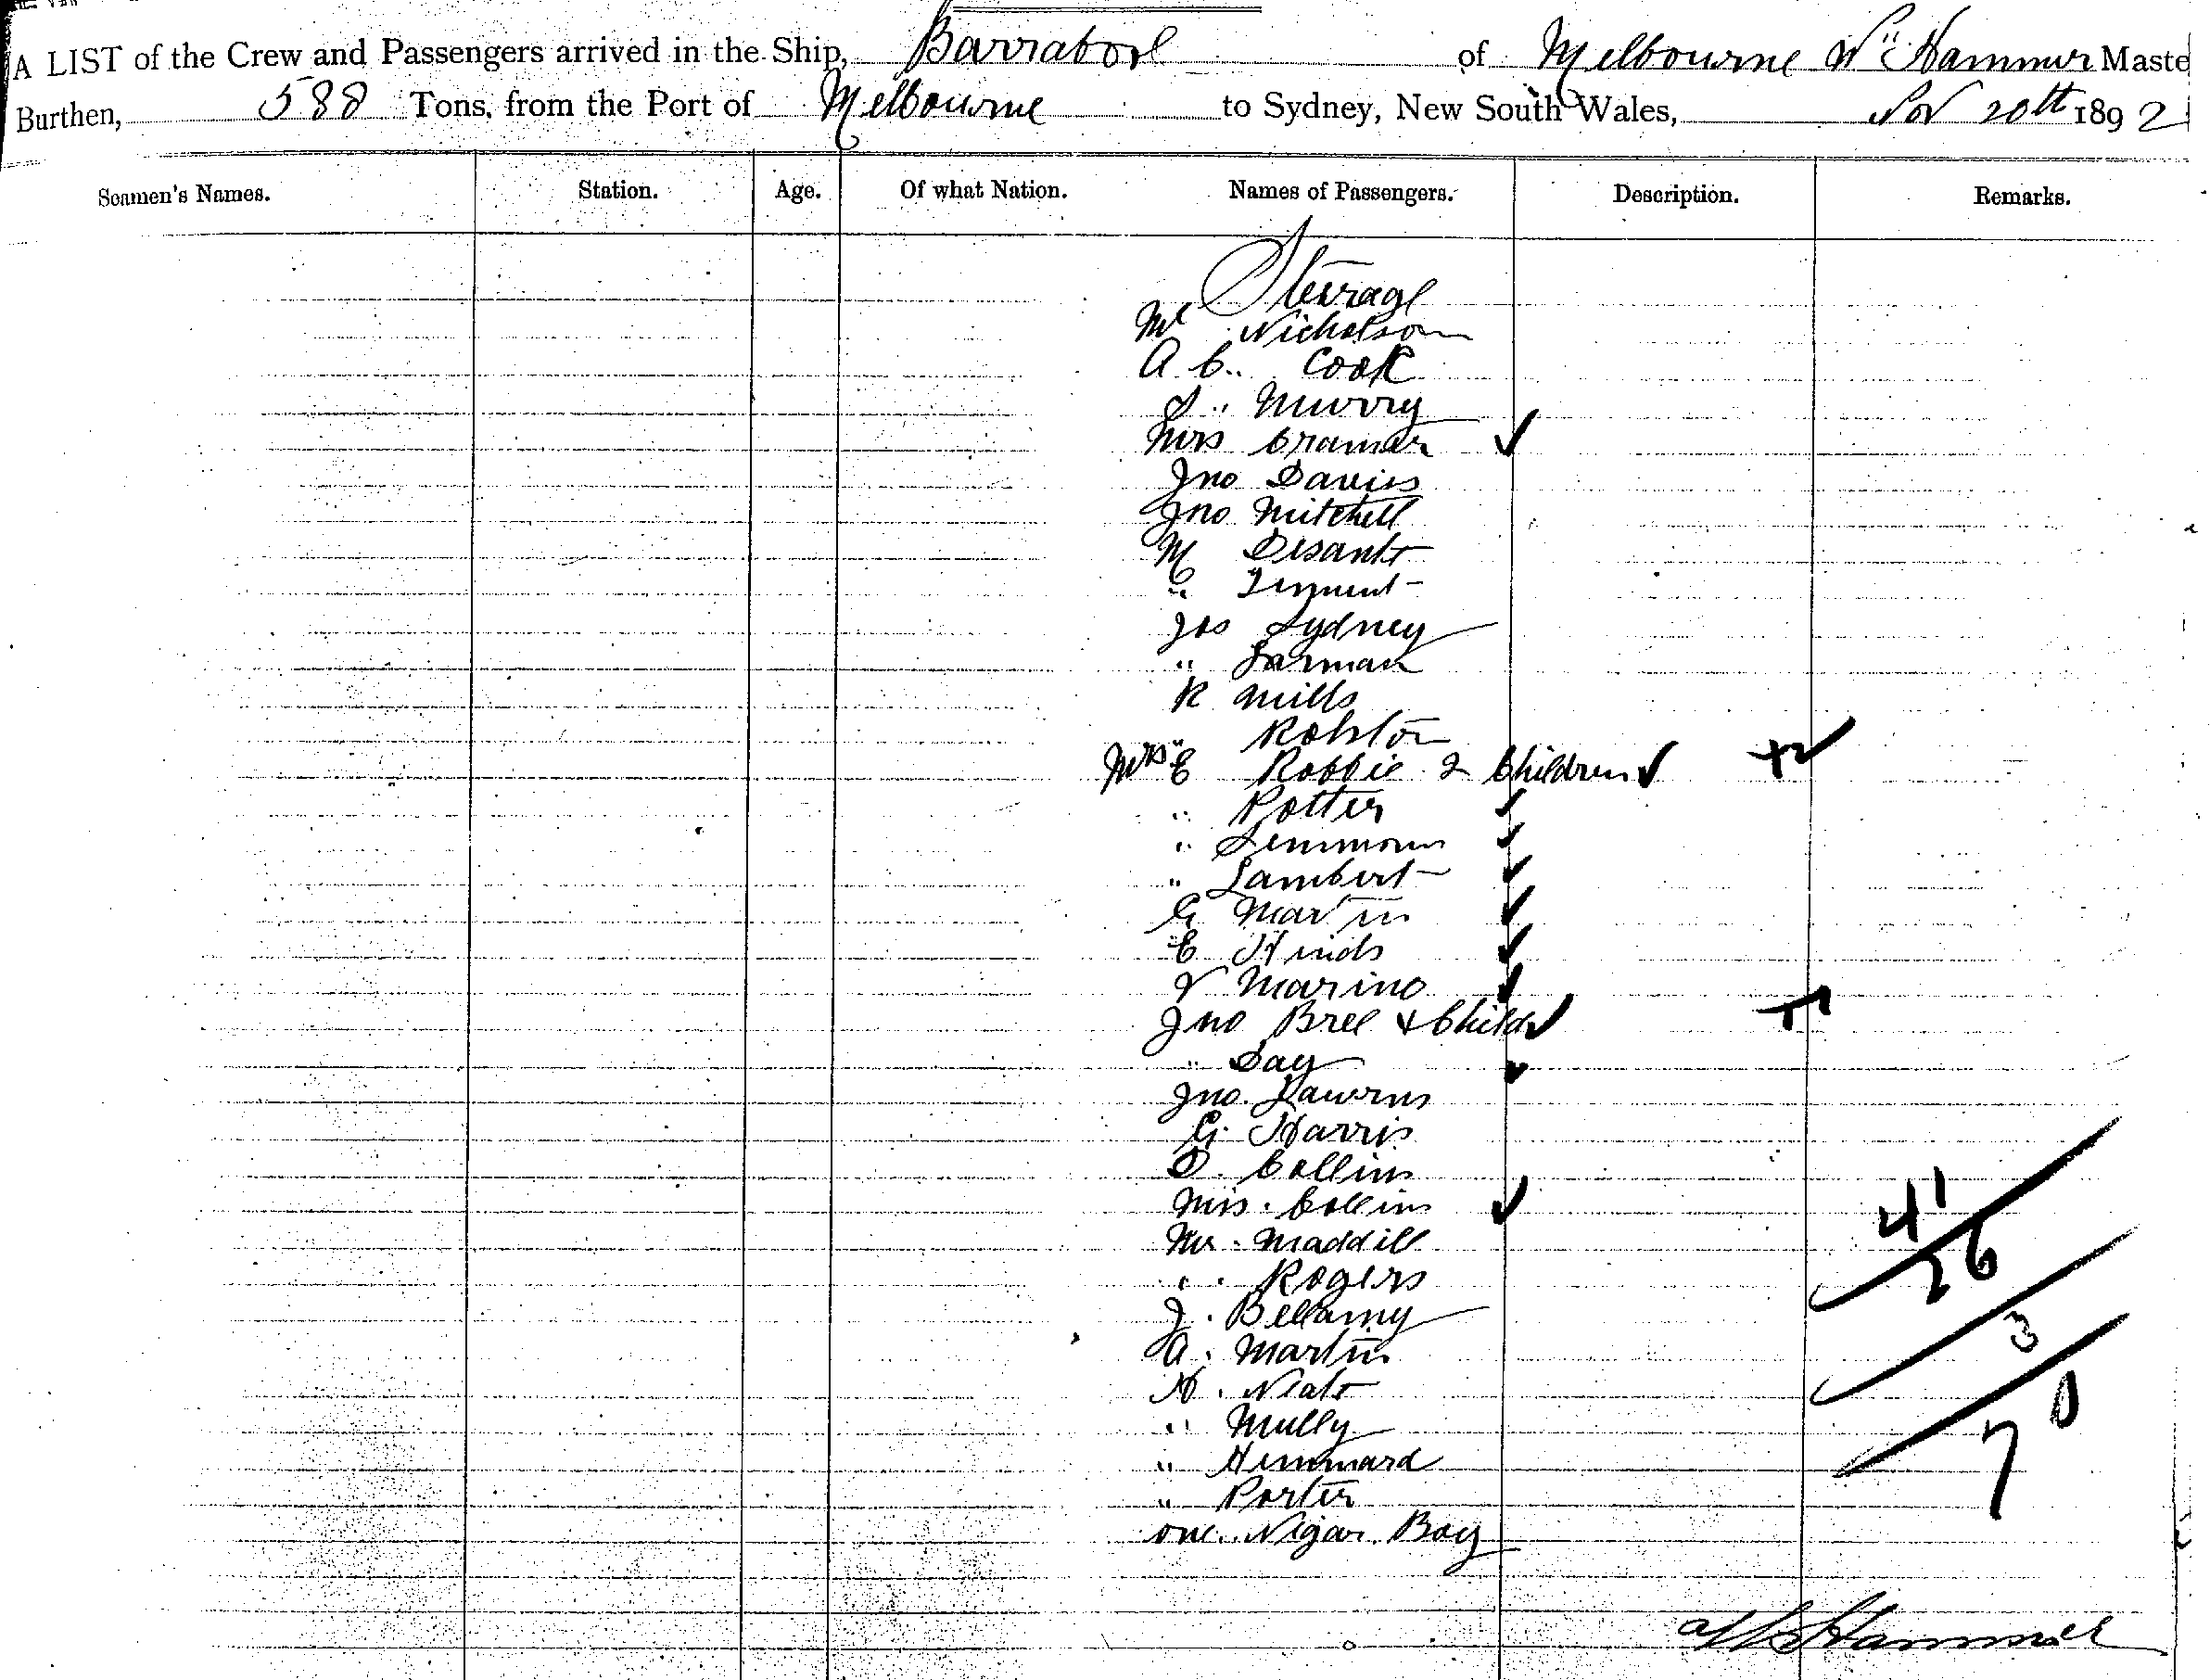 A LIST of the Crew and Passengers arrived in the Ship, Barrabool of Melbourne Wm Hammer Maste
Burthen, 588 Tons, from the Port of Melbourne to Sydney, New South Wales, Nov 20th 1892
Seamen's Names. Station. Age. Of what Nation. Names of Passengers. Description. Remarks.
Steerage
Mr Nicholson
A C Cook
S " Murry
Mrs Cramer ✓
Jno Davies
Jno Mitchell
M
"
Jos Sydney
" Jarman
R Mills
" Rolston
Mrs E Robbie 2 Children ✓ + 2
" Potter ✓
" Lemmon ✓
" Lambert ✓
G Martin ✓
E Hinds ✓
V Marino ✓
Jno Bree & Child ✓ + 1
" Day ✓
Jno. Lawrens
G. Harris
D. Collins
Miss. Collins ✓
Mr. Maddill
" Rogers
J. Bellamy
A. Martin
H.
" Mully
"
" Porter
one Nigar Boy
41
26
3
70
Hammer